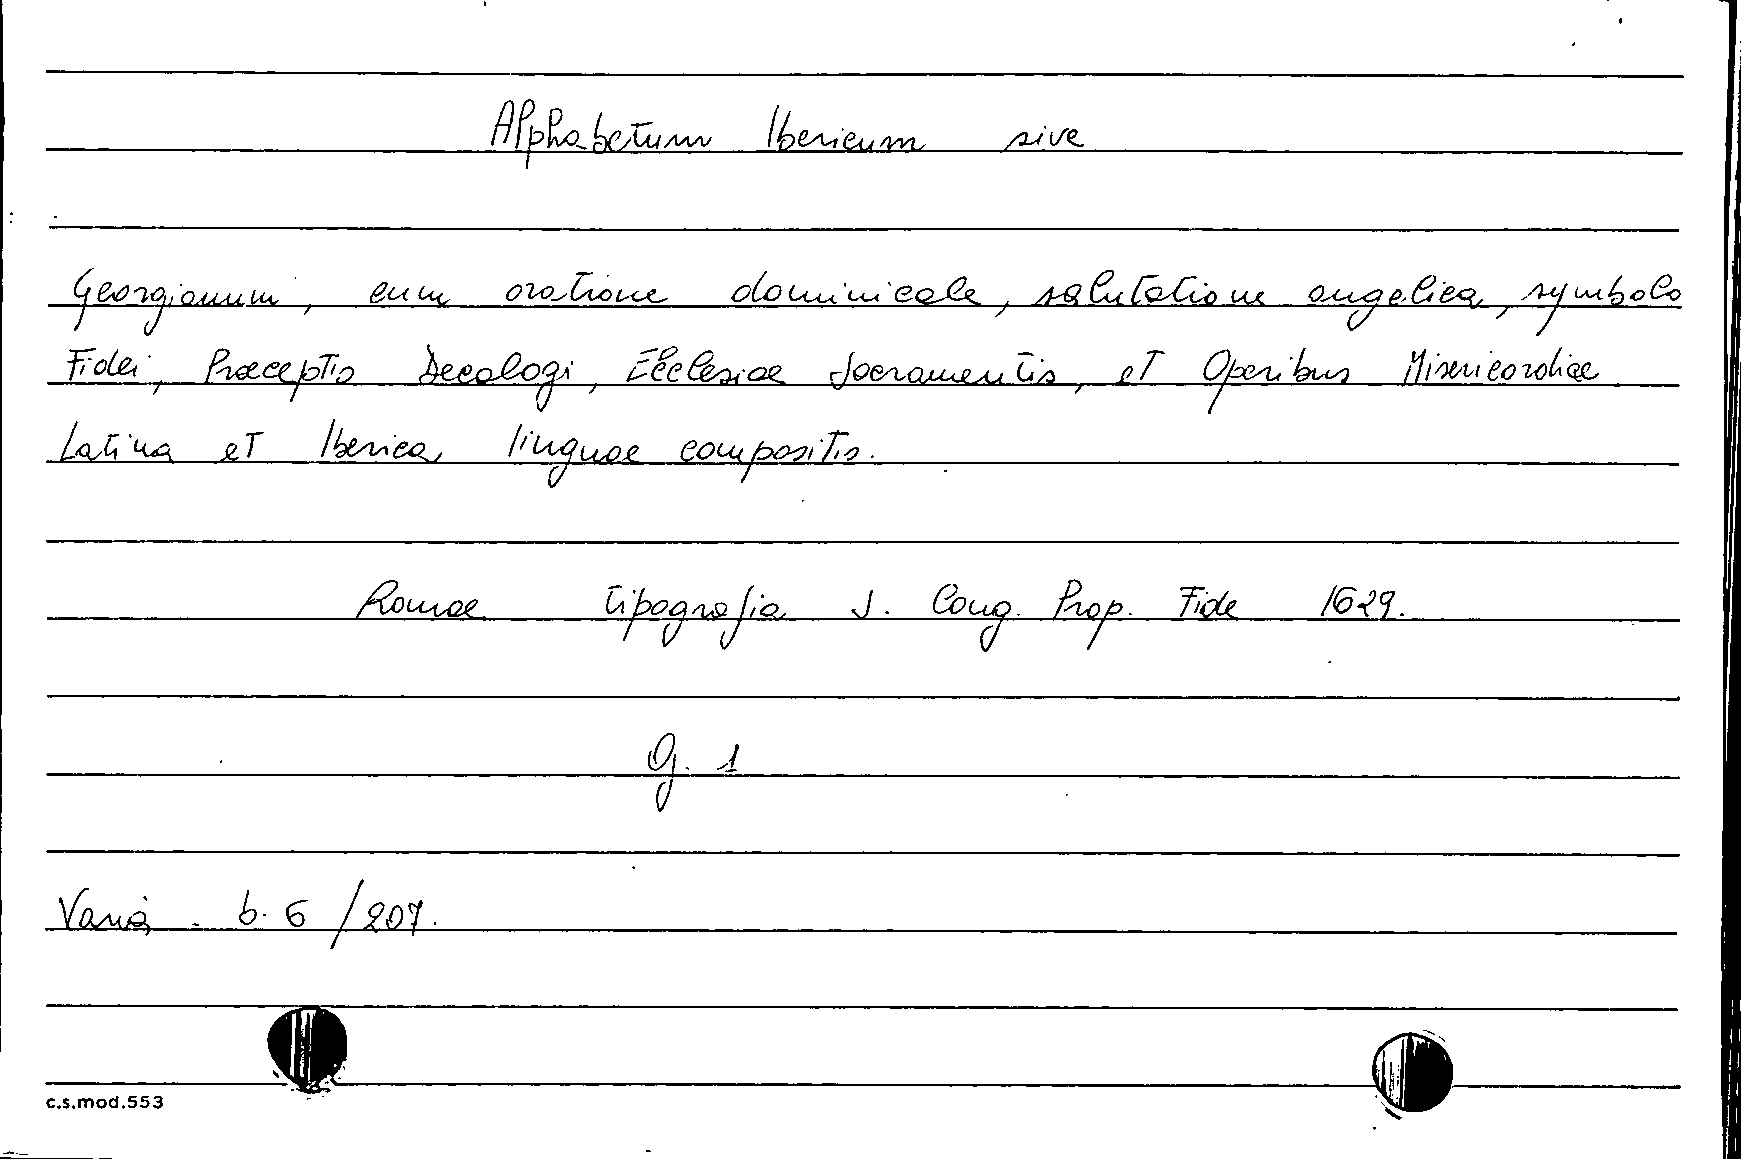 Alphabetum Ibericum sive
Georgianum, cum oratione dominicale, salutatione angelica, symbolo
Fidei, Præceptis Decalogi, Ecclesiae Sacramentis, et Operibus Misericordiae
Latina et Iberica linguae compositis.
Romae tipografia S. Cong. Prop. Fide 1629.
g. 1
Varia. b. 6 /207.
c.s.mod.553